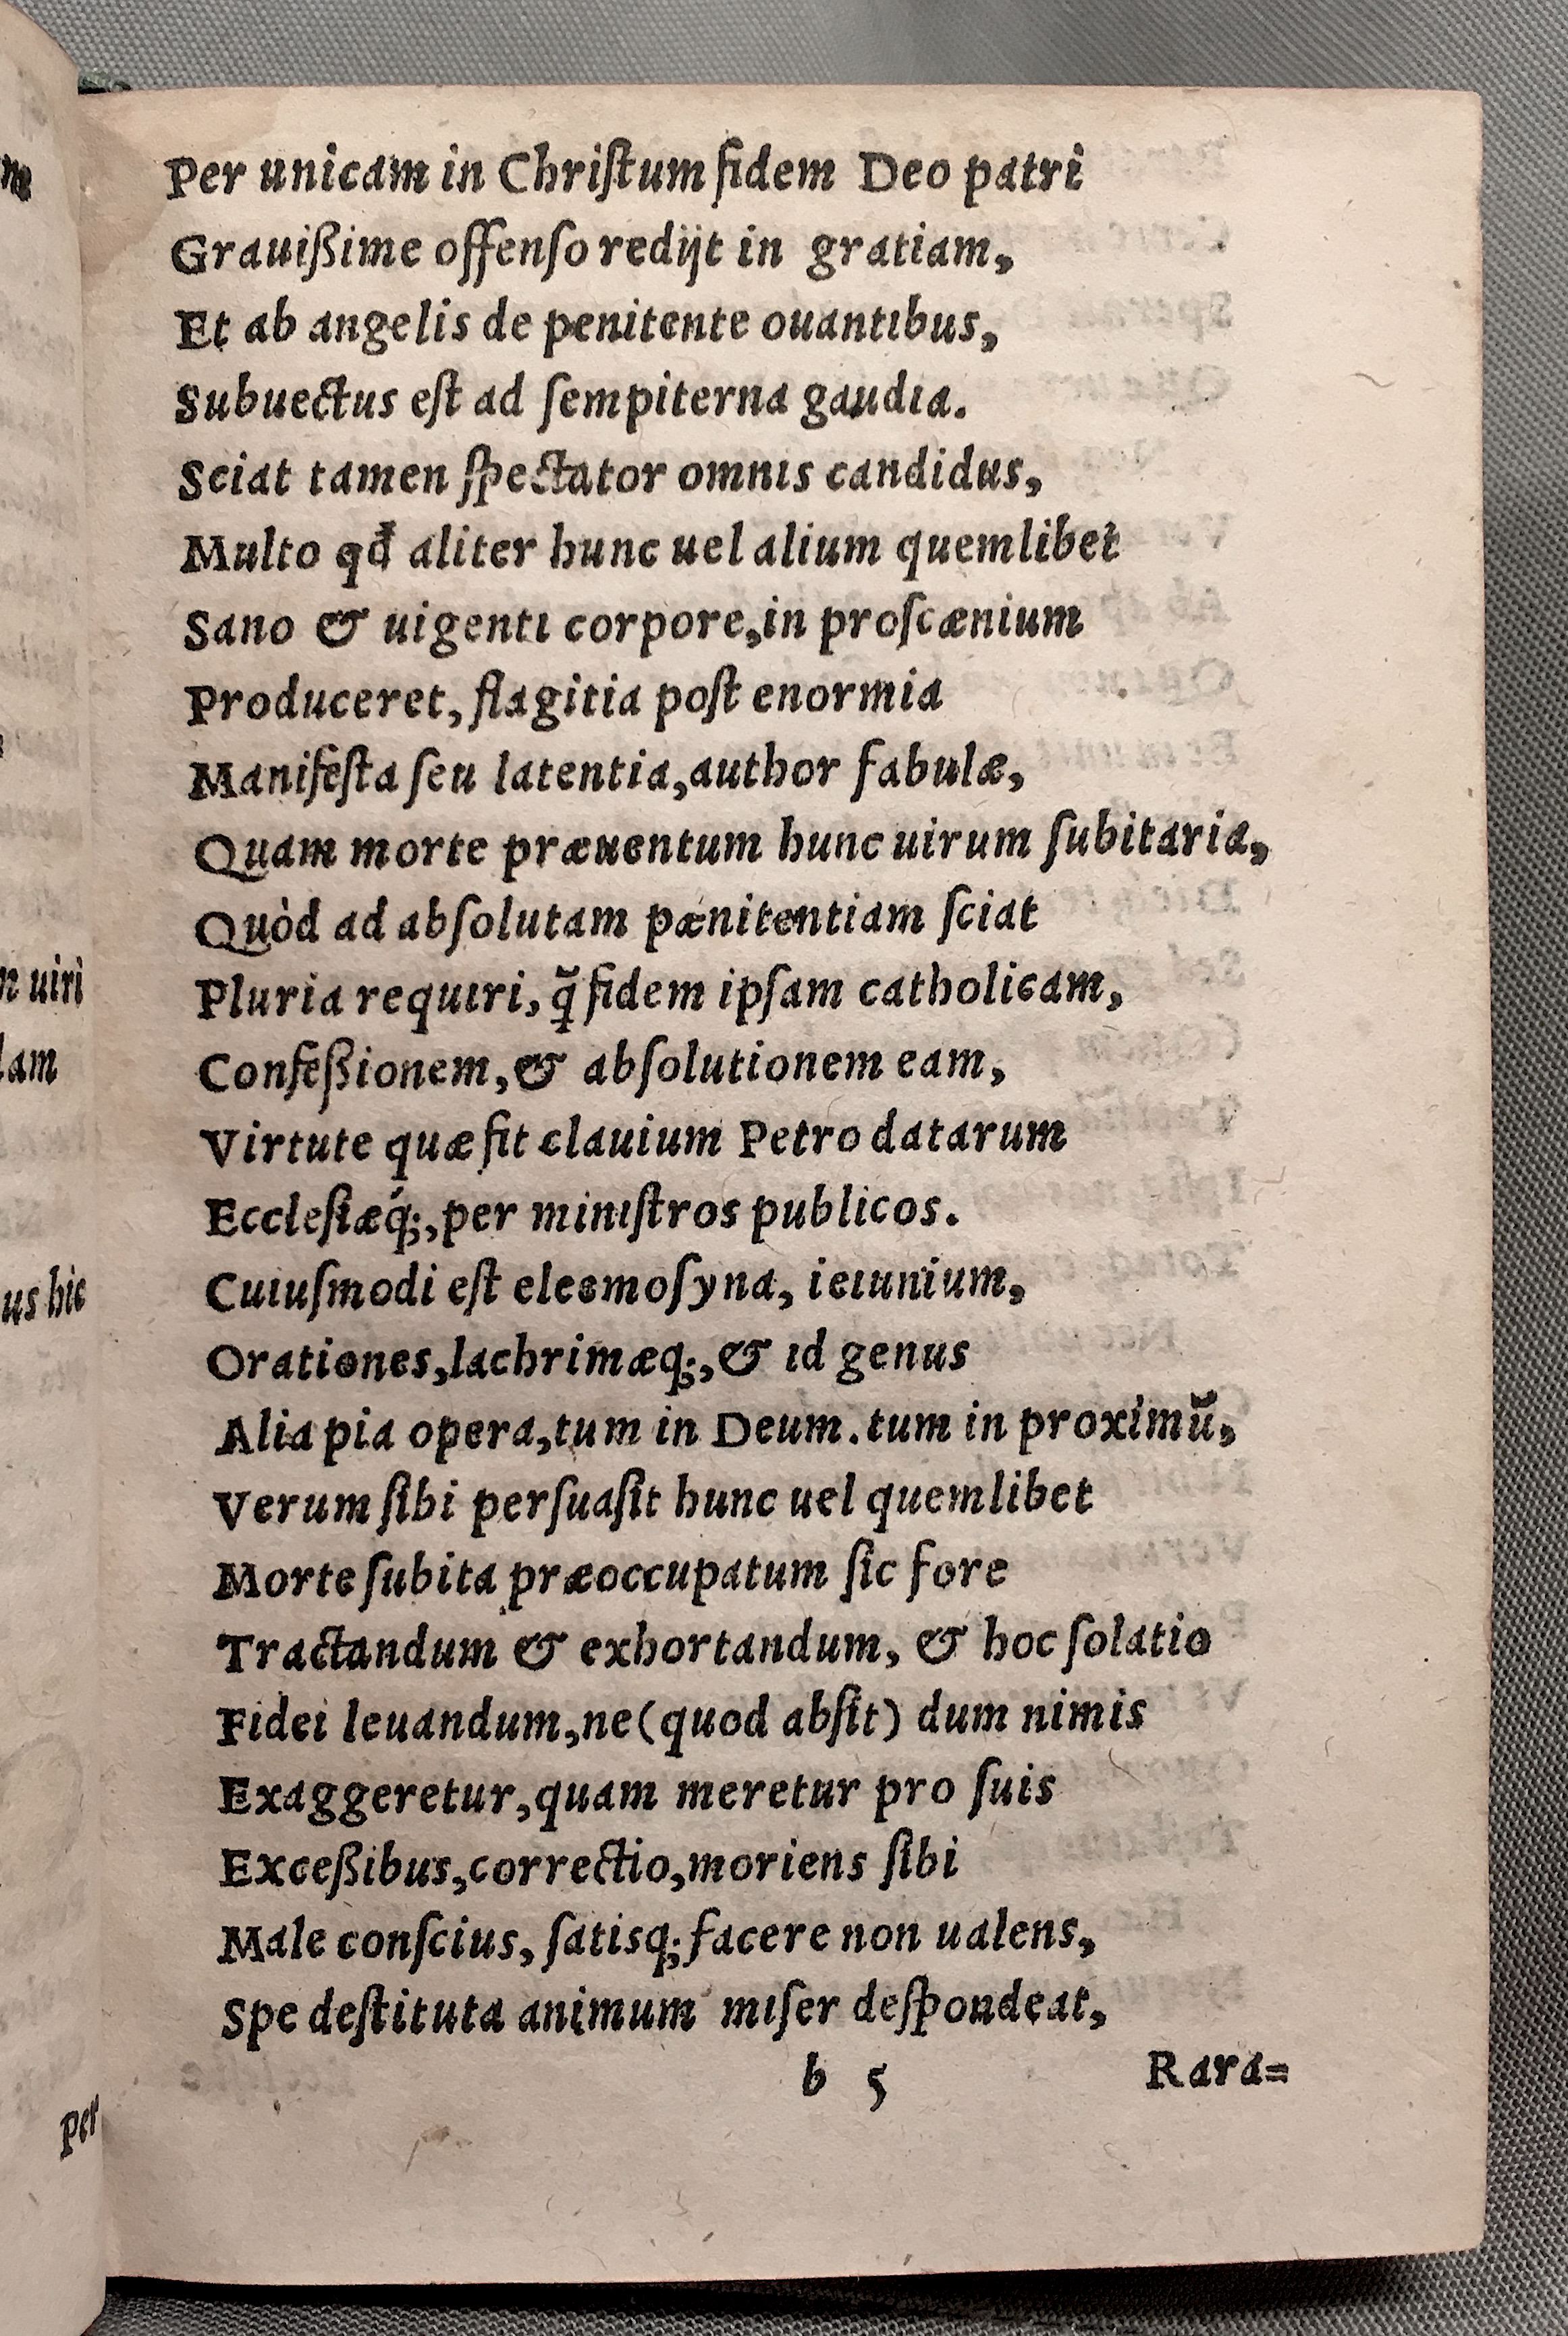 Per unicam in Chriſtum fidem Deo patri
Grauißime offenſo redijt in gratiam,
Et ab angelis de penitente ouantibus,
Subuectus eſt ad ſempiterna gaudia.
Sciat tamen ſpectator omnis candidus,
Multo qđ aliter hunc uel alium quemlibet
Sano & uigenti corpore,in proſcænium
Produceret, flagitia poſt enormia
Manifeſta ſeu latentia,author fabulæ,
Quam morte præuentum hunc uirum ſubitaria,
Quòd ad abſolutam pænitentiam ſciat
Pluria requiri, q̃ fidem ipſam catholicam,
Confeßionem,& abſolutionem eam,
Virtute quæ fit clauium Petro datarum
Eccleſiæq́;,per miniſtros publicos.
Cuiuſmodi eſt eleemoſyna, ieiunium,
Orationes,lachrimæq;,& id genus
Alia pia opera,tum in Deum.tum in proximũ,
Verum ſibi perſuaſit hunc uel quemlibet
Morte ſubita præoccupatum ſic fore
Tractandum & exhortandum, & hoc ſolatio
Fidei leuandum,ne(quod abſit) dum nimis
Exaggeretur,quam meretur pro ſuis
Exceßibus,correctio,moriens ſibi
Male conſcius, ſatisq; facere non ualens,
Spe deſtituta animum miſer deſpondeat,
b 5 Rara=
n uiri
lam
us hic
per